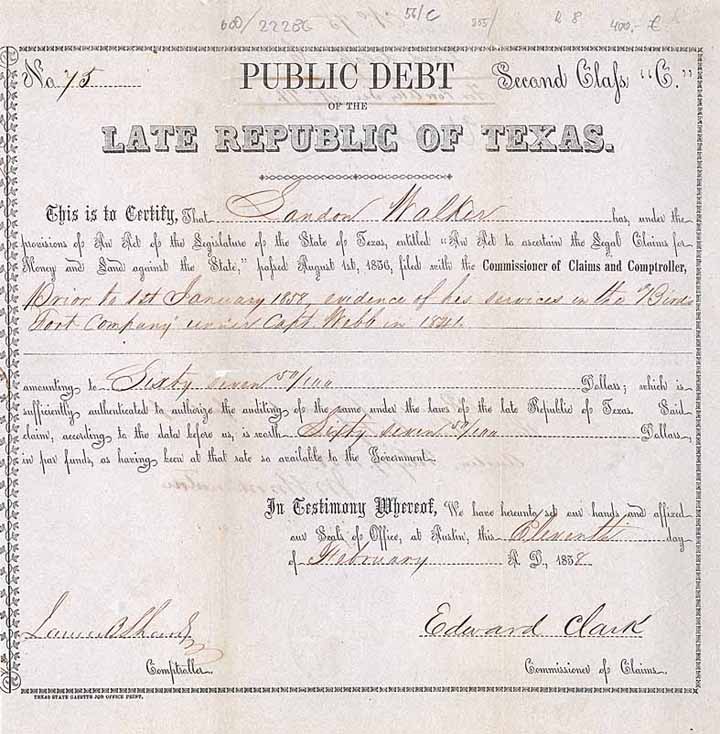 600/2228E 56/C 355/ R 8 400,- €
No. 75 PUBLIC DEBT Second Class "C."
OF THE
LATE REPUBLIC OF TEXAS.
This is to Certify, That Landon Walker has, under the
provisions of An Act of the Legislature of the State of Texas, entitled "An Act to ascertain the Legal Claims for
Money and Land against the State," passed August 1st, 1856, filed with the Commissioner of Claims and Comptroller,
Prior to 1st January 1858, evidence of his services in the "Birds
Fort Company under Capt. Webb in 1841
amounting to Sixty seven 50/100 Dollars; which is
sufficiently authenticated to authorize the auditing of the same, under the laws of the late Republic of Texas. Said
claim, according to the data before us, is worth Sixty seven 50/100 Dollars,
in par funds, as having been at that rate so available to the Government.
In Testimony Whereof, We have hereunto set our hands and affixed
our Seals of Office, at Austin, this Eleventh day
of February A. D., 1858
Edward Clark
Comptroller. Commissioner of Claims.
TEXAS STATE GAZETTE JOB OFFICE PRINT.